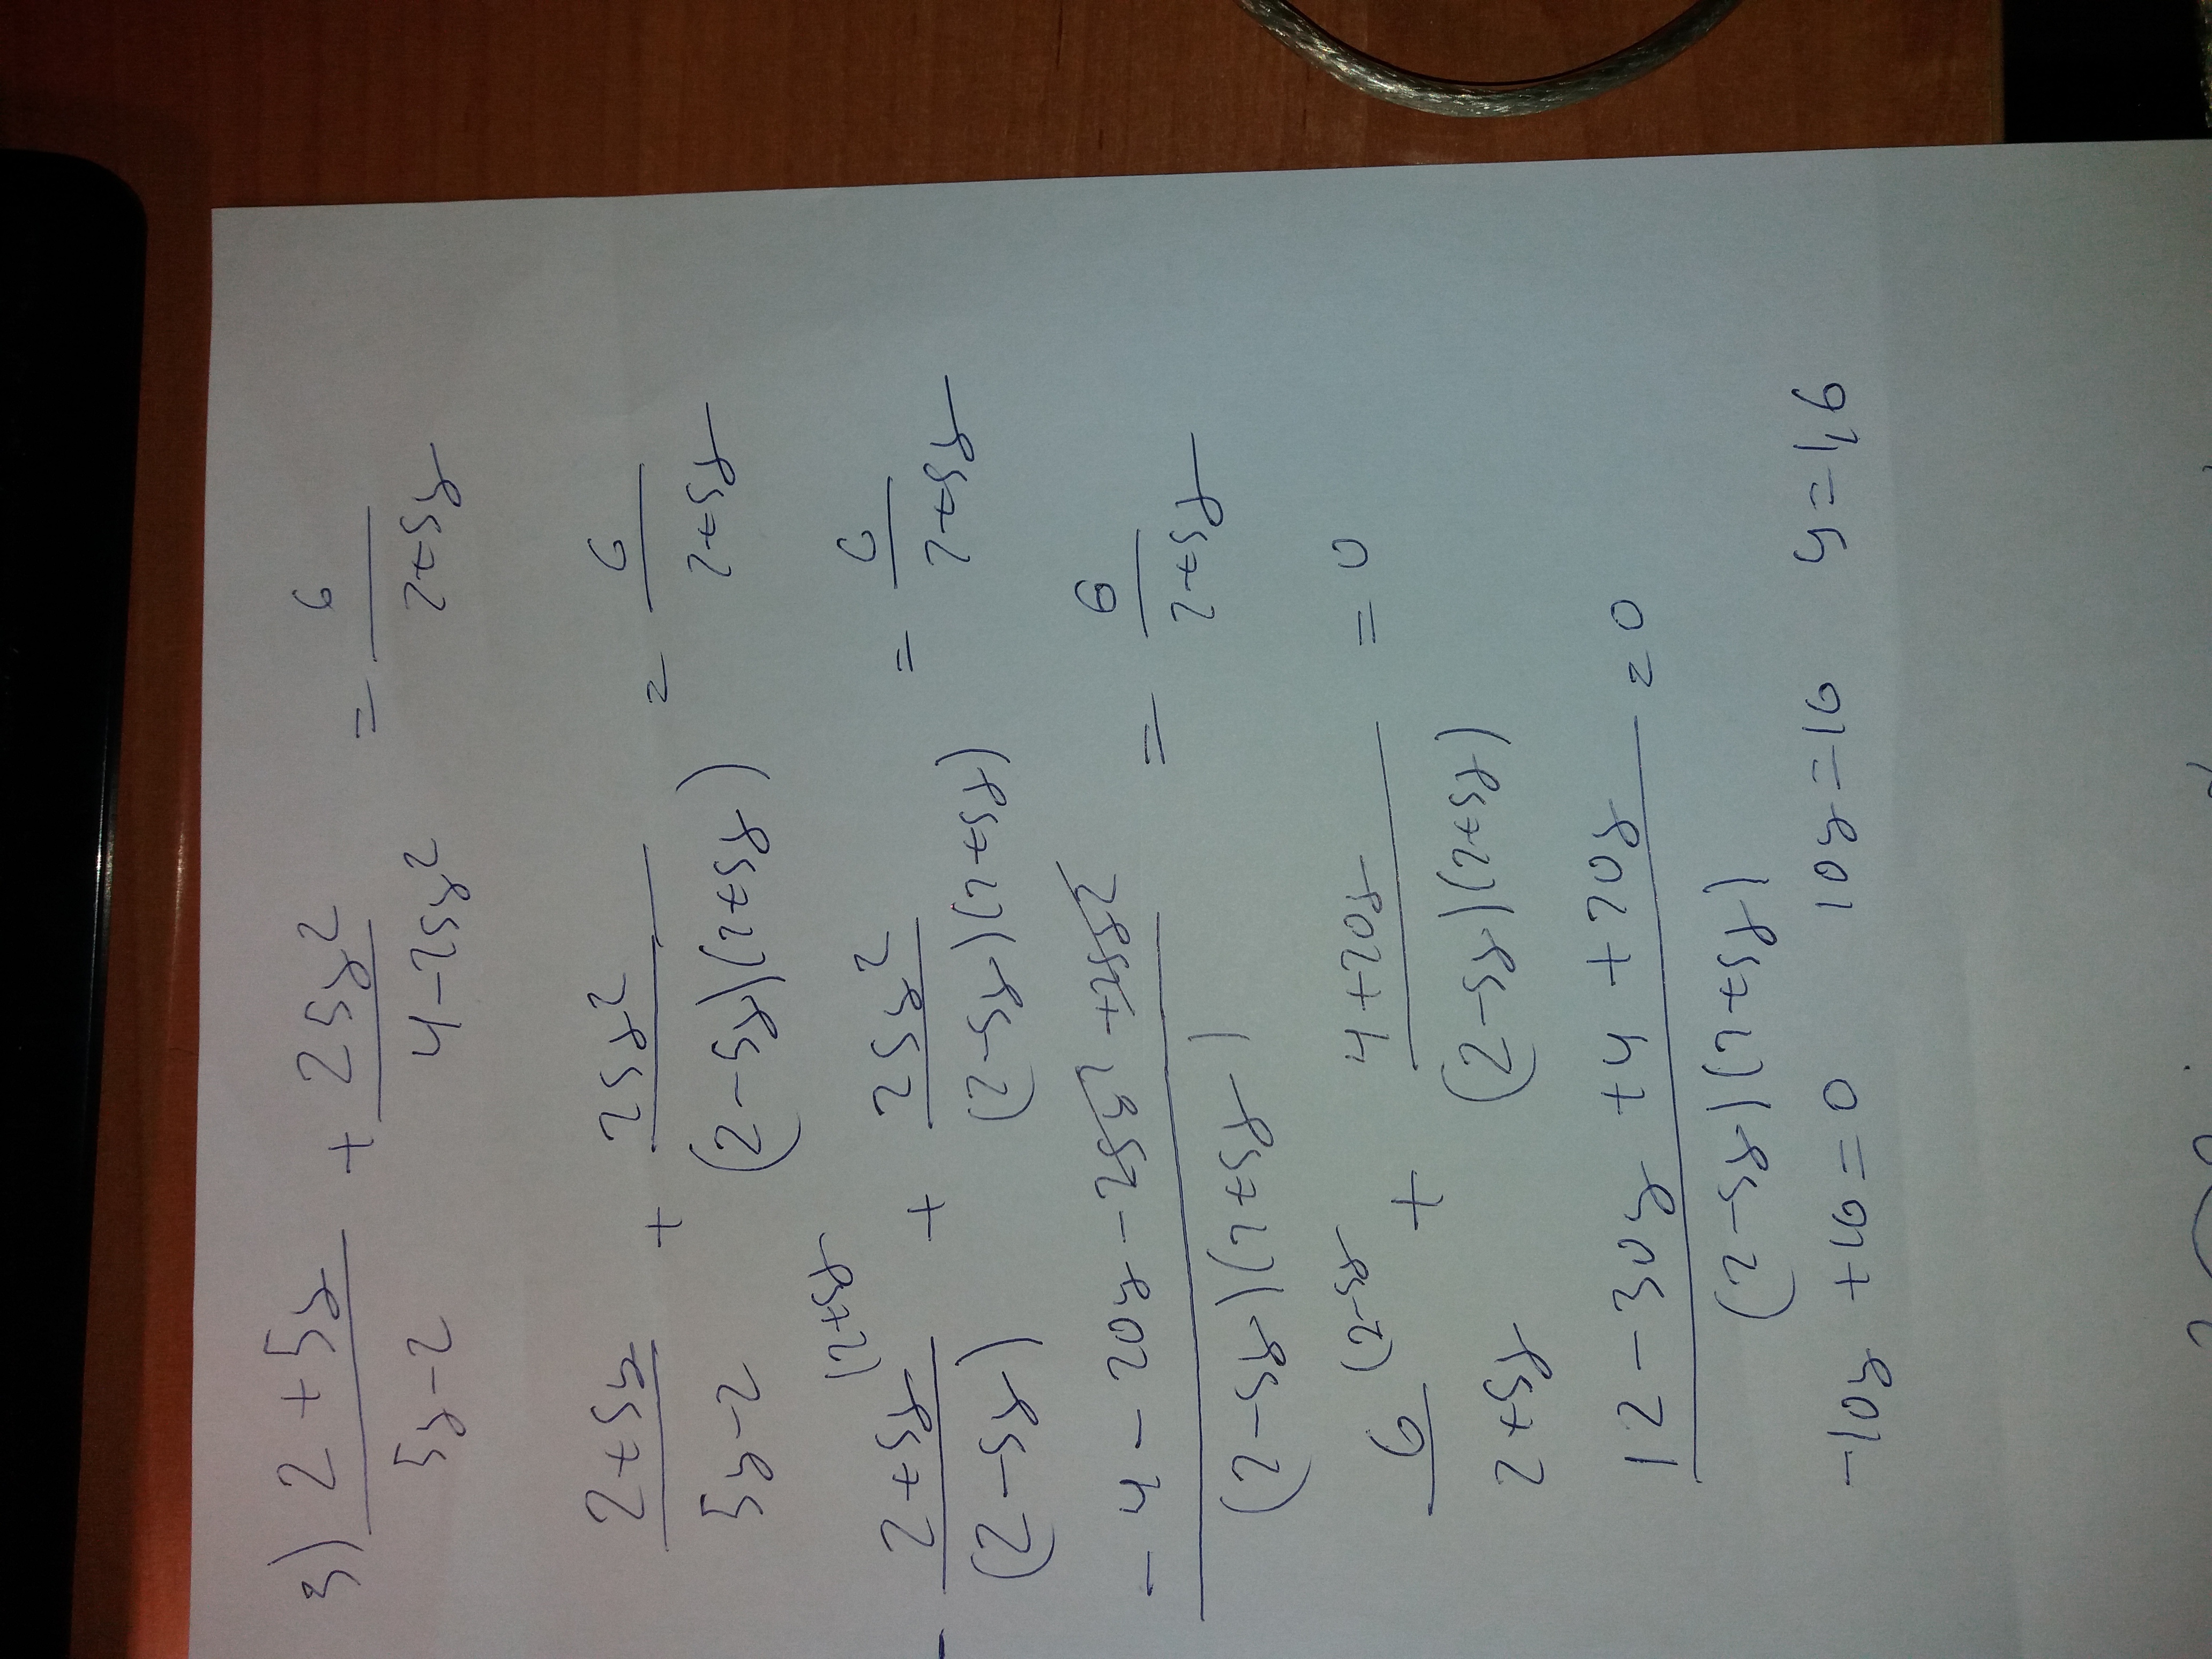 3) (2+5y)/(5y-2) + 25y²/(4-25y²) = 6/(2+5y)
(2+5y)/(5y-2) + 25y²/((2-5y)(2+5y)) = 6/(2+5y)
- (2+5y)/(2-5y) (2+5y + 25y²/((2-5y)(2+5y)) = 6/(2+5y)
(-4-20y-25y²+25y²)/((2-5y)(2+5y)) = 6/(2+5y)
6/(2+5y) (2-5y + (4+20y)/((2-5y)(2+5y)) = 0
(12-30y+4+20y)/((2-5y)(2+5y)) = 0
-10y+16=0 10y=16 y=1,6